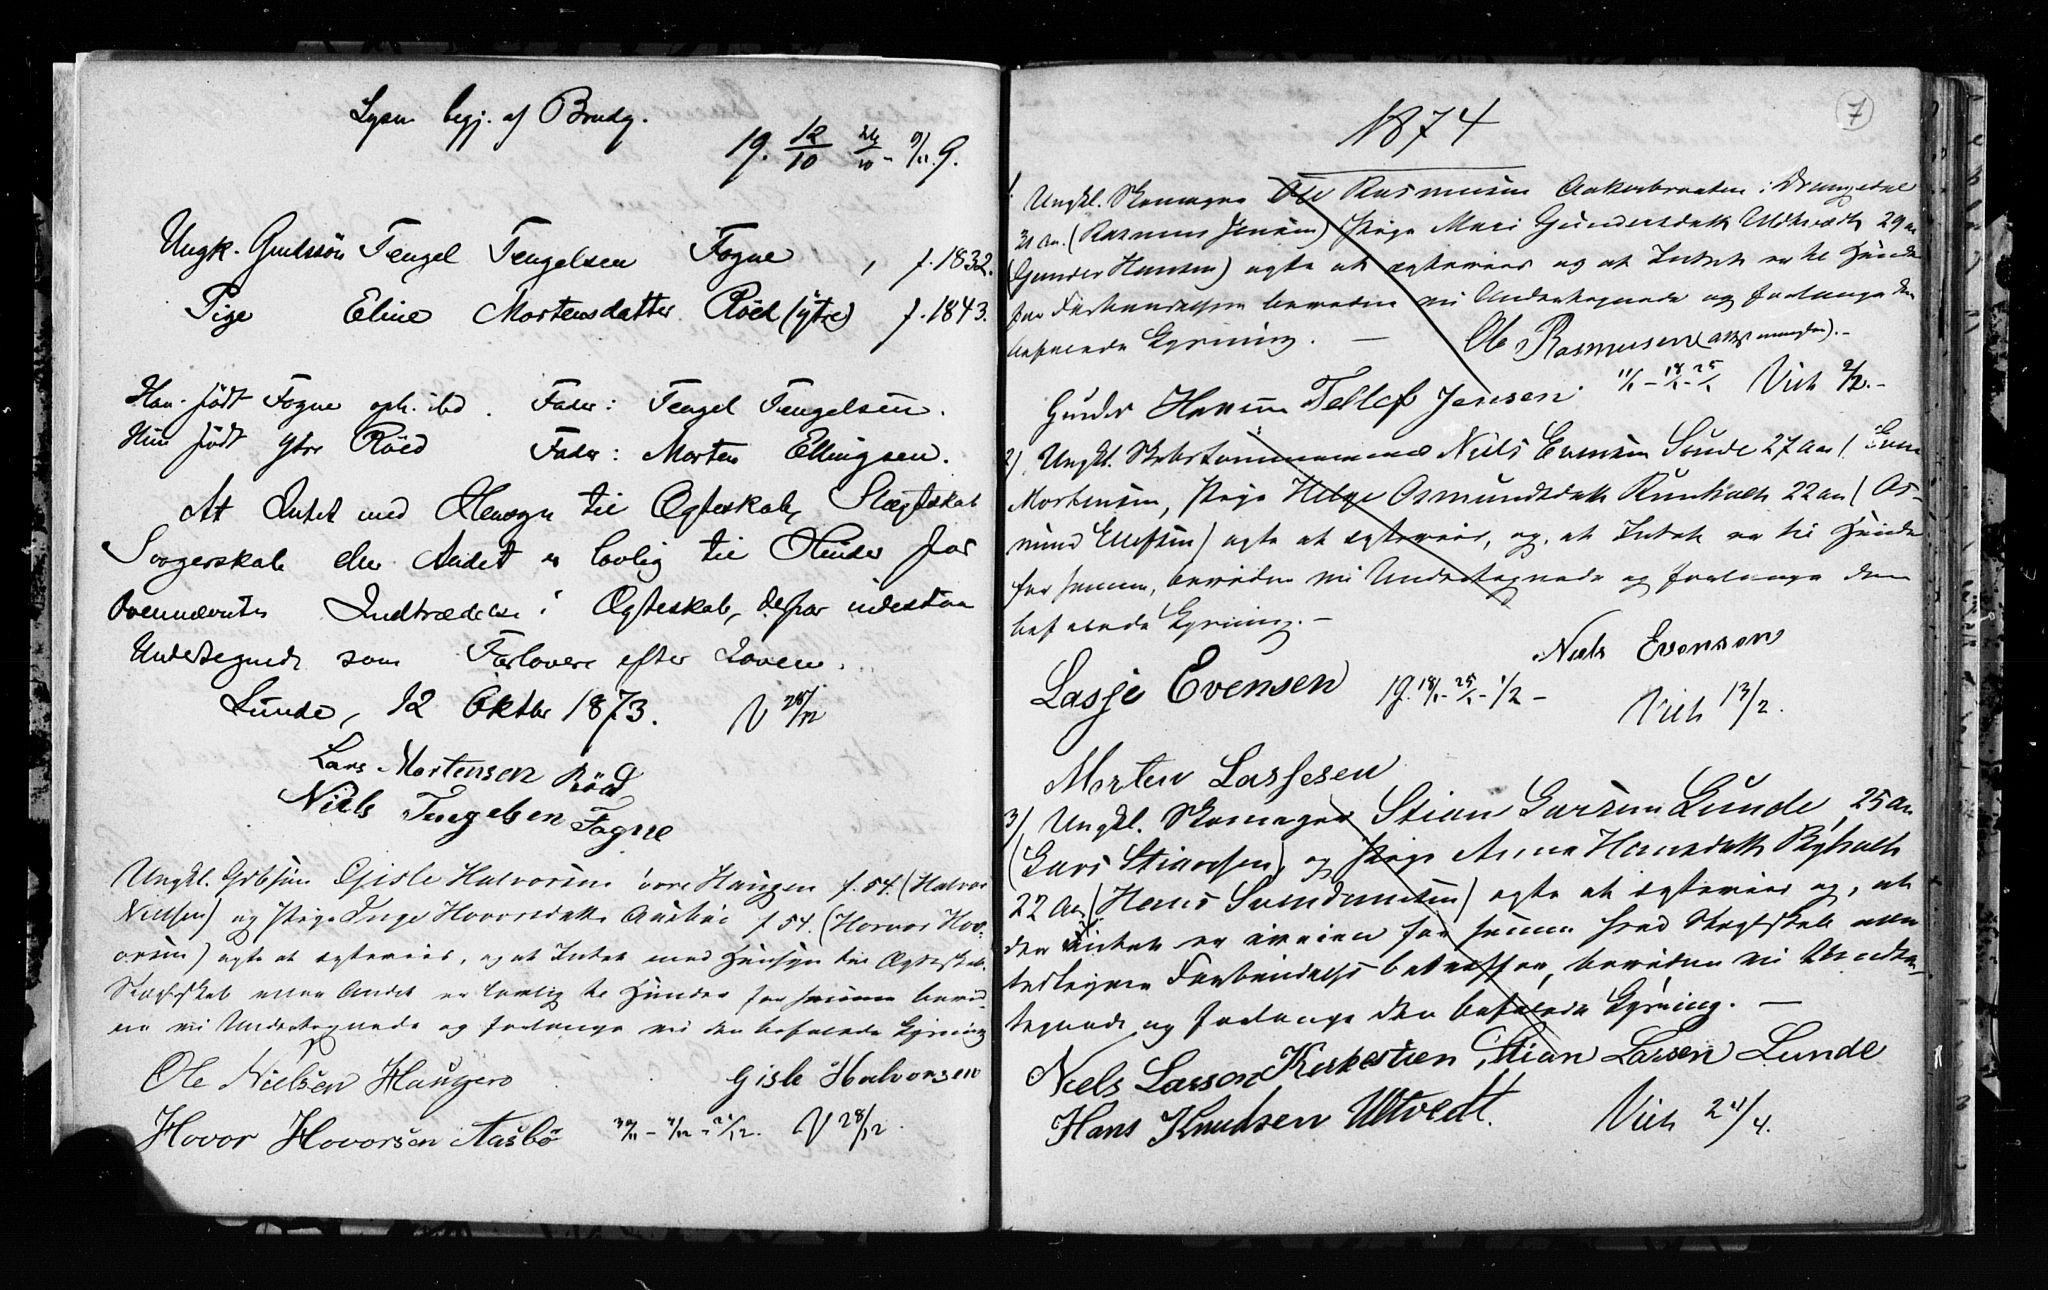 Lysn. begj. af Brudg.
19. 12/10 26/10 - 9/11. 9.
Ungk. Gaardssön Tengel Tengelsen Fogne , f. 1832.
Pige Eline Mortensdatter Röed (ytre) f. 1843.
Han født Fogne oph. ibd. Fader: Tengel Tengelsen.
Hun født Ytre Röed Fader: Morten Ellingsen.
At Intet med Hensyn til Ægteskab, Slægtskab
Svogerskab eller Andet er lovlig til Hinder for
Ovennævntes Indtrædelse i Ægteskab, derfor indestaa
Undertegnede som Forlovere efter Loven.
Lunde, 12 Oktbr 1873. V 26/12
Lars Mortensen Röd
Niels Tengelsen Fogne
Ungkl. Gdbsøn Gisle Halvorsen øvre Haugen f. 54. (Halvor
Nielsen) og Pige Inge Hovorsdatt. Aasböe f. 54. (Hovor Hov-
orsen) agte at ægtevies, og at Intet med Hensyn til Ægteskab,
Slægtskab eller Andet er lovlig til Hinder for samme bevid-
ne vi Undertegnede og forlange vi den befalede Lysning
Ole Nielsen Haugen Gisle Halvorsen
Hovor Hovorsen Aasbö 30/11 - 7/12 - 21/12. V 28/12.
7
1874
1 Ungkl. Skomager Ole Rasmusen Aakerbraaten i Drangedal
31 Aar (Rasmus Jensen) Pige Mari Gundersdatt. Uldtvedt 29 Aar
(Gunder Hansen) agte at ægtevies og at Intet er til Hinder
for Forbindelsen bevidne vi Undertegnede og forlange den
befalede Lysning. — Ole Rasmusen
Gunder Hansen Tellef Jensen 11/1 - 18/1 - 25/1 Viet 2/2.-
2) Ungkl. Skibstømmermand Niels Evensen Sunde 27 Aar (Even
Mortensen, Pige Helge Osmundsdatt. 22 Aar (Os-
mund Ellefsen) agte at ægtevies, og, at Intet er til Hinder
for samme, bevidne vi Undertegnede og forlange den
befalede Lysning. —
Niels Evensen
Lasje Evensen 19. 18/1 - 25/1 - 1/2 - Viet 13/2.
Morten Lassesen
3) Ungkl. Skomager Stian Larsen Lunde, 25 Aar
(Lars Stiansen) og Pige Anne Hansdatt.
22 Aar (Hans) agte at ægtevies og, at
der Intet er iveien for samme hvad Slægtskab eller
Forbindelse betræffer, bevidne vi Underteg-
tegnede og forlange den befalede Lysning. —
Niels Larsen Kirkestien Stian Larsen Lunde
Hans Knudsen Utvedt. Viet 24/4.